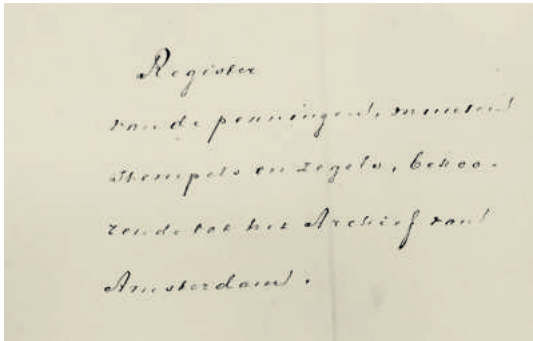 Register
van de penningen, munten
stempels en zegels, behoo-
rende tot het Archief van
Amsterdam.